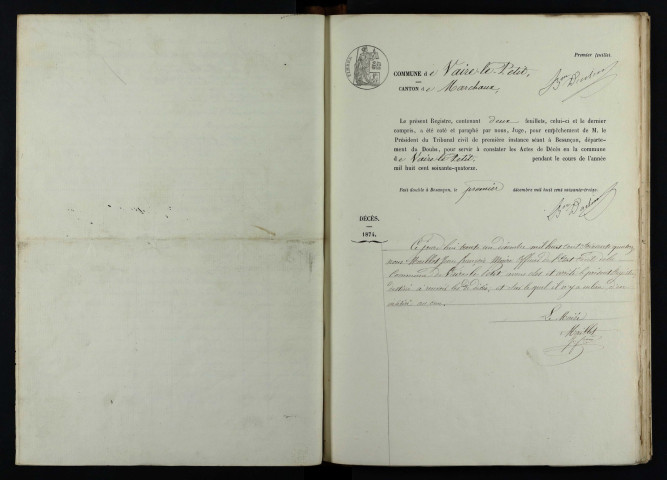 Premier feuillet.
COMMUNE de Vaire-le-Petit,
CANTON de Marchaux,
Le présent Registre, contenant deux feuillets, celui-ci et le dernier
compris, a été coté et paraphé par nous, Juge, pour empêchement de M. le
Président du Tribunal civil de première instance séant à Besançon, départe-
ment du Doubs, pour servir à constater les Actes de Décès en la commune
de Vaire-le-Petit, pendant le cours de l'année
mil huit cent soixante-quatorze.
Fait double à Besançon, le premier décembre mil huit cent soixante-treize.
DÉCÈS.
1874.
Ce jourd'hui trente un décembre mil huit cent soixante quatorze
nous Maillot Jean François Maire officier de l'état civil de la
Commune de Vaire le Petit avons clos et arrêté le présent registre
destiné à recevoir les de décès, et sur lequel il n'y a
Le Maire
Maillot